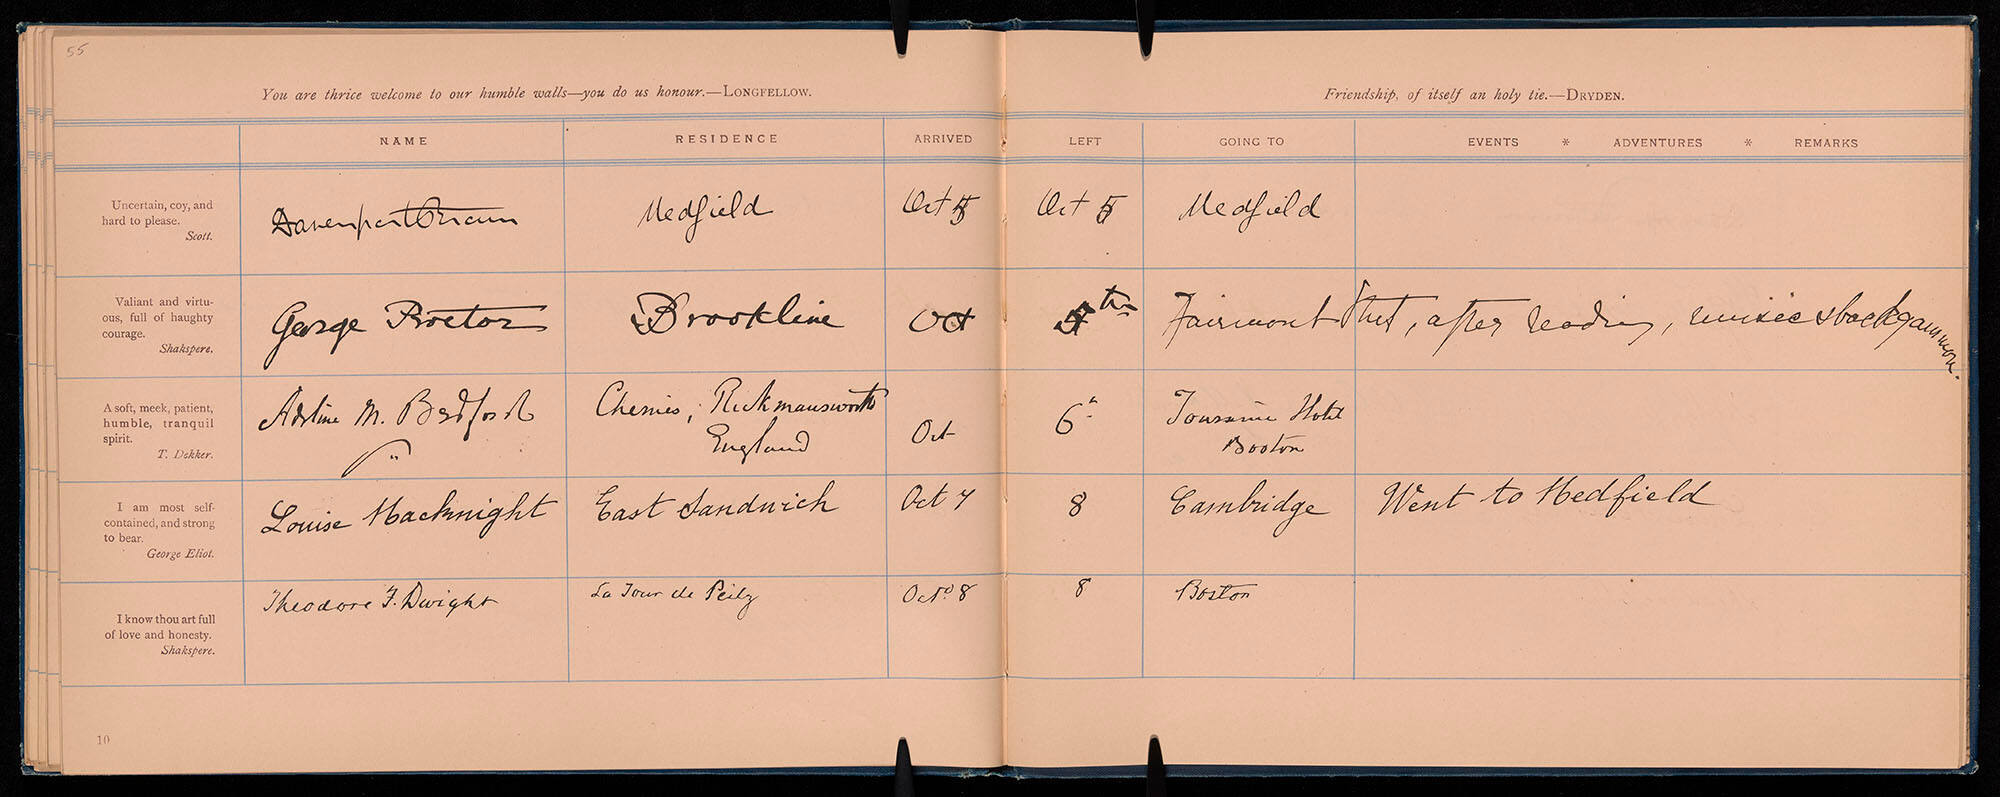 55
You are thrice welcome to our humble walls—you do us honour.—LONGFELLOW.
Friendship, of itself an holy tie.—DRYDEN.
NAME RESIDENCE ARRIVED LEFT GOING TO EVENTS * ADVENTURES * REMARKS
Uncertain, coy, and
hard to please.
Scott.
Davenport Brown Medfield Oct 5 Oct 5 Medfield
Valiant and virtu-
ous, full of haughty
courage.
Shakspere.
George Proctor Brookline Oct 5th Fairmont after reading, music & backgammon.
A soft, meek, patient,
humble, tranquil
spirit.
T. Dekker.
Adeline M. Bedford Chenies, Rickmansworth
England
Oct 6th Touraine Hotel
Boston
I am most self-
contained, and strong
to bear.
George Eliot.
Louise Macknight East Sandwich Oct 7 8 Cambridge Went to Medfield
I know thou art full
of love and honesty.
Shakspere.
Theodore F. Dwight La Tour de Peilz Octo 8 8 Boston
10